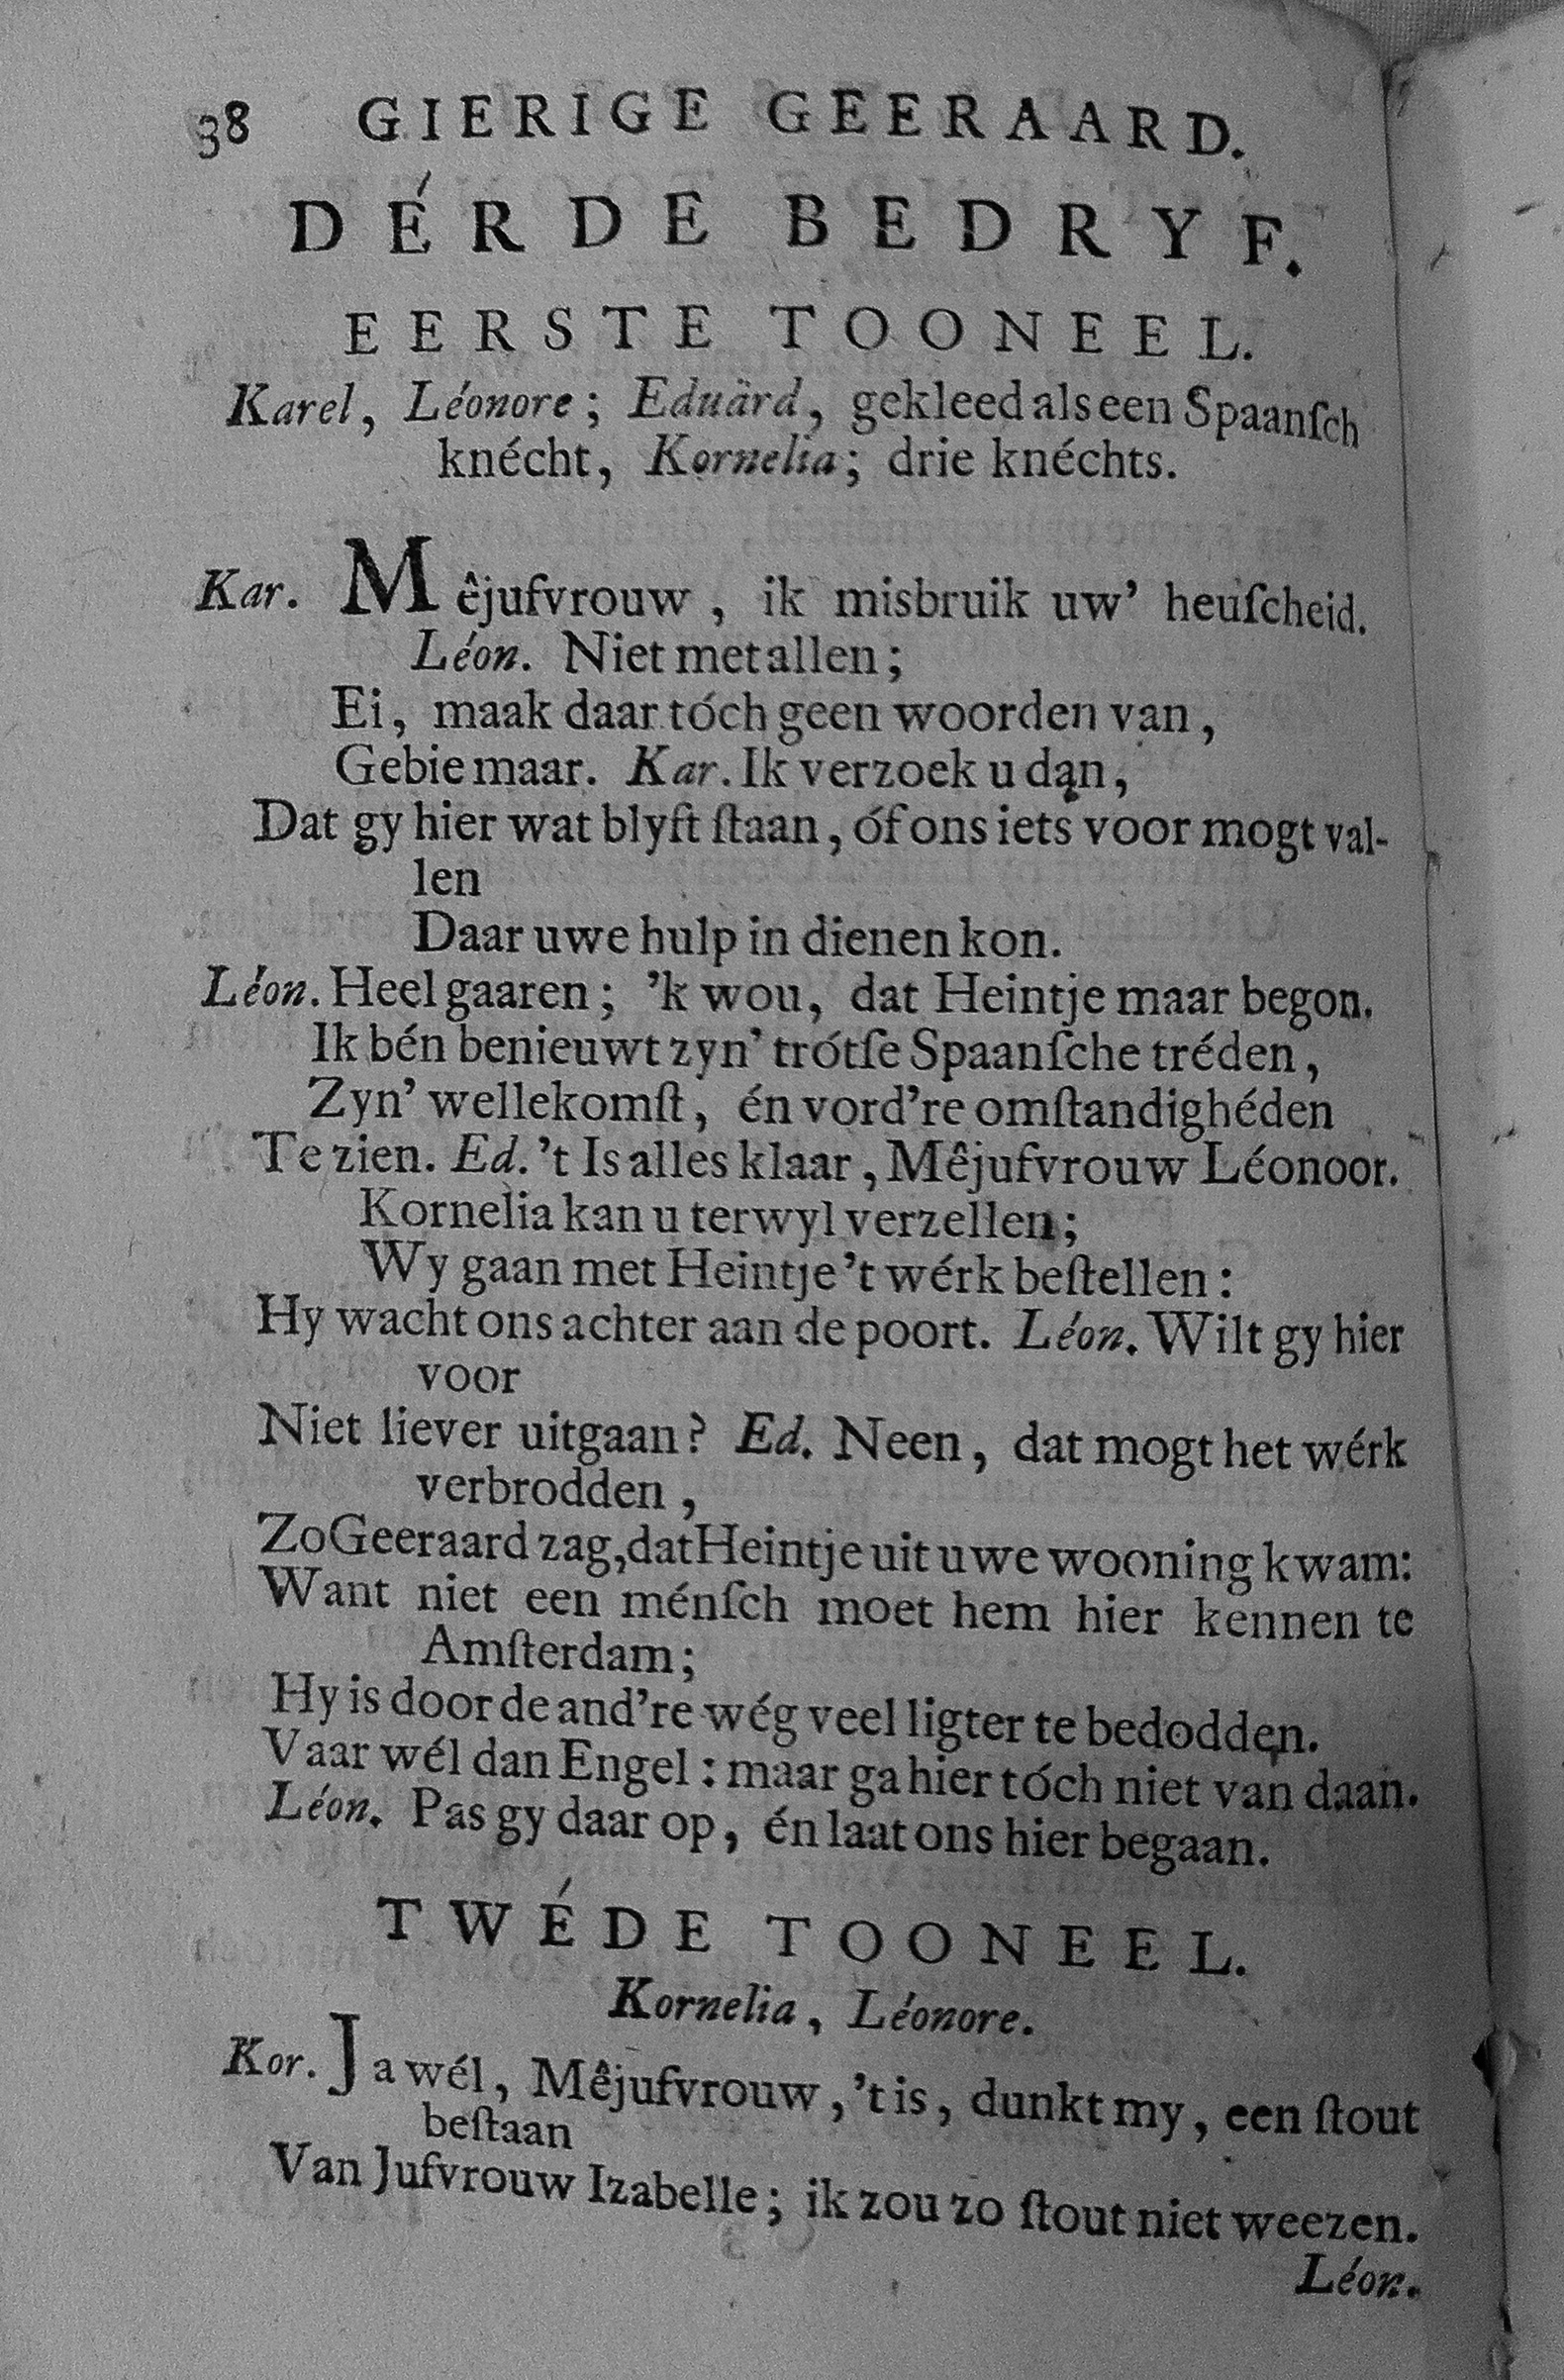 38 GIERIGE GEERAARD.
DÉRDE BEDRYF.
EERSTE TOONEEL.
Karel, Léonore; Eduärd, gekleed als een Spaanſch
knécht, Kornelia; drie knéchts.
Kar. Mêjufvrouw, ik misbruik uw' heuſcheid.
Léon. Niet met allen;
Ei, maak daar tóch geen woorden van,
Gebie maar. Kar. Ik verzoek u dan,
Dat gy hier wat blyft ſtaan, óf ons iets voor mogt val-
len
Daar uwe hulp in dienen kon.
Léon. Heel gaaren; 'k wou, dat Heintje maar begon.
Ik bén benieuwt zyn' trótſe Spaanſche tréden,
Zyn' wellekomſt, én vord're omſtandighéden
Te zien. Ed. 't Is alles klaar, Mêjufvrouw Léonoor.
Kornelia kan u terwyl verzellen;
Wy gaan met Heintje 't wérk beſtellen:
Hy wacht ons achter aan de poort. Léon. Wilt gy hier
voor
Niet liever uitgaan? Ed. Neen, dat mogt het wérk
verbrodden,
Zo Geeraard zag, dat Heintje uit uwe wooning kwam:
Want niet een ménſch moet hem hier kennen te
Amſterdam;
Hy is door de and're wég veel ligter te bedodden.
Vaar wél dan Engel: maar ga hier tóch niet van daan.
Léon. Pas gy daar op, én laat ons hier begaan.
TWÉDE TOONEEL.
Kornelia, Léonore.
Kor. Ja wél, Mêjufvrouw, 't is, dunkt my, een ſtout
beſtaan
Van Jufvrouw Izabelle; ik zou zo ſtout niet weezen.
Léon.